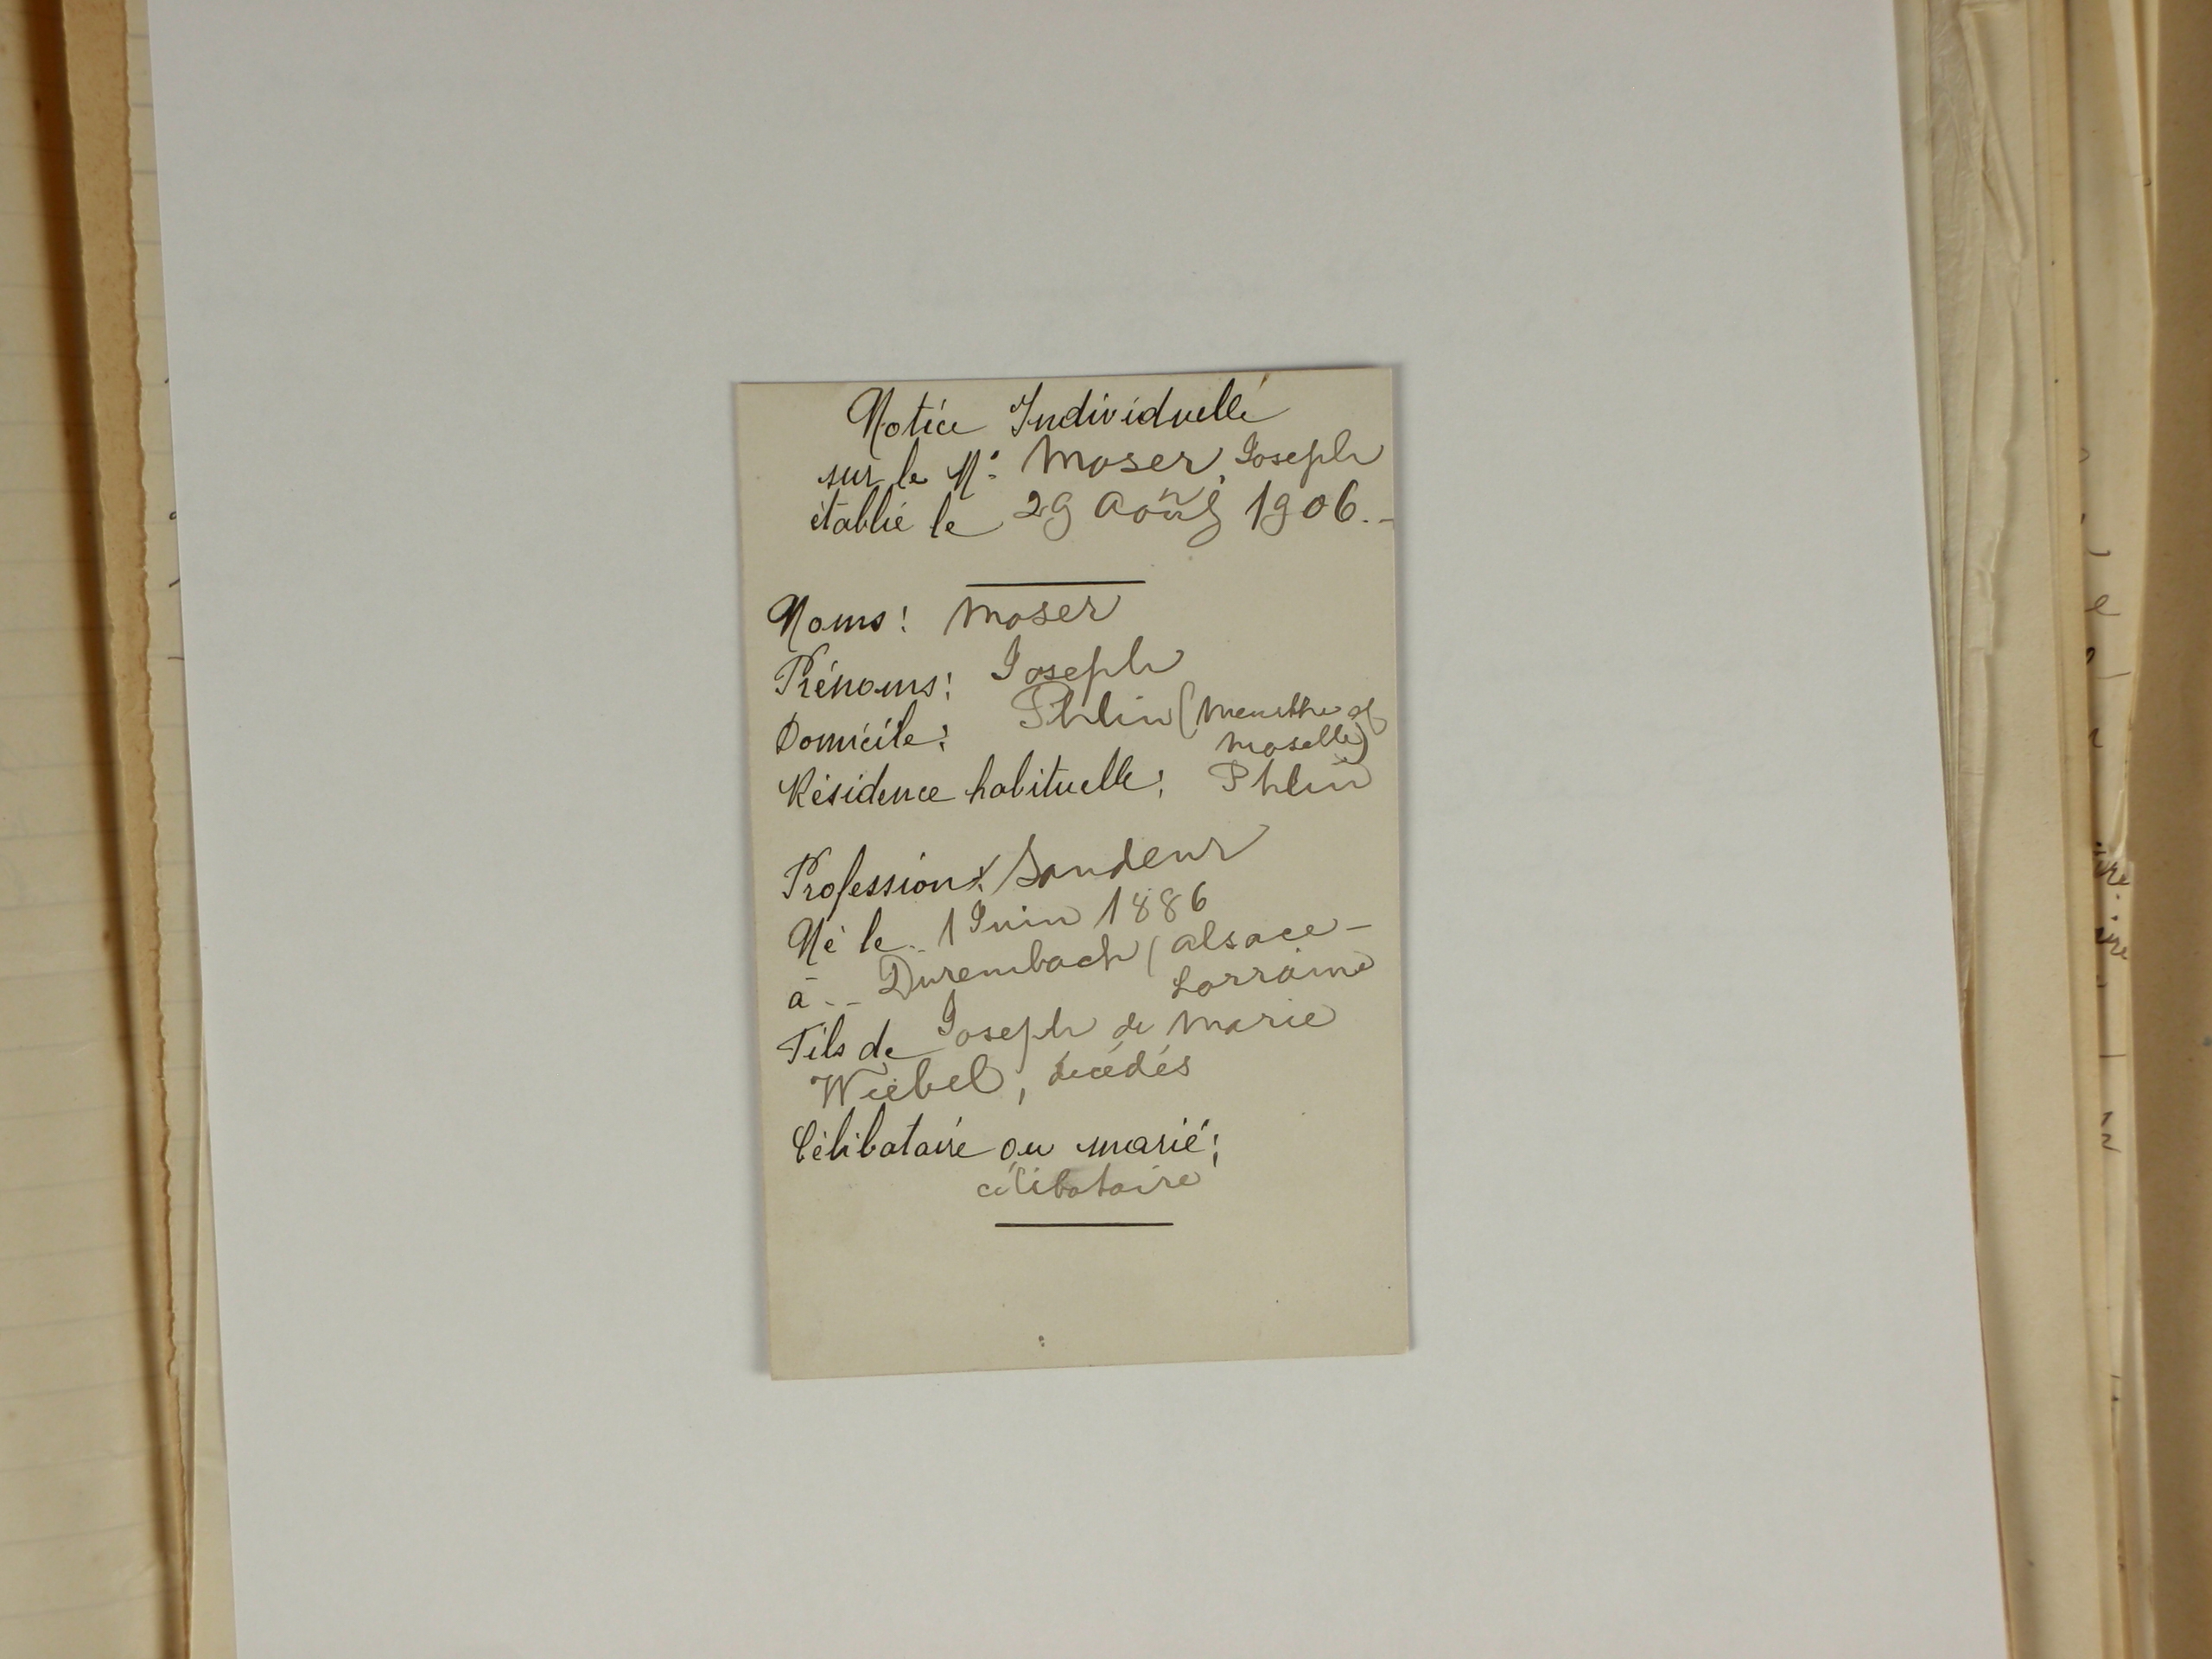 Notice Individuelle
sur le N° Moser, Joseph
établie le 29 Août 1906.-
Noms: Moser
Prénoms: Joseph
Domicile: Phlin (Meurthe et
Moselle)
Résidence habituelle: Phlin
Profession: Sondeur
Né le.. 1 Juin 1886
à -- Durembach (Alsace-
Lorraine
Fils de Joseph de Marie
Wiebel, décédés
Célibataire ou marié:
célibataire